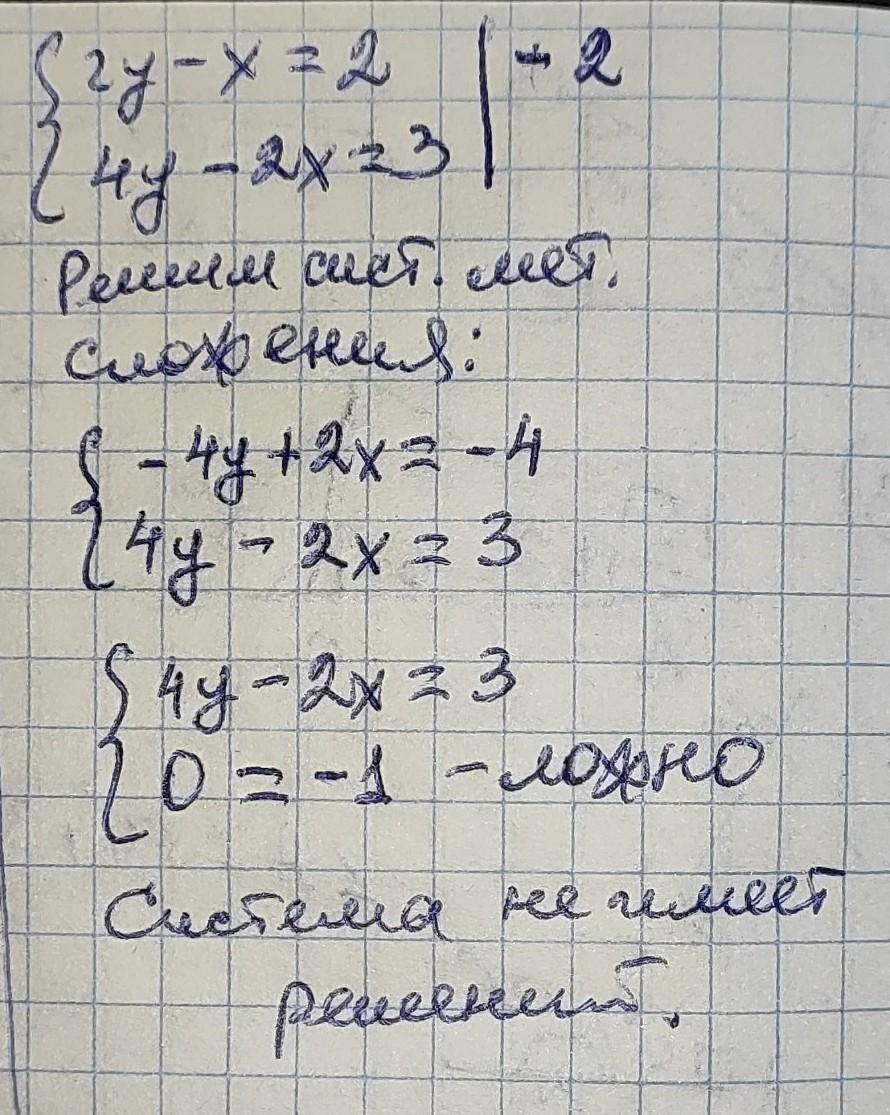 { 2y - x = 2 | - 2
{ 4y - 2x = 3 |
Решим сист. мет.
сложения:
{ - 4y + 2x = - 4
{ 4y - 2x = 3
{ 4y - 2x = 3
{ 0 = - 1 - ложно
Система не имеет
решений.